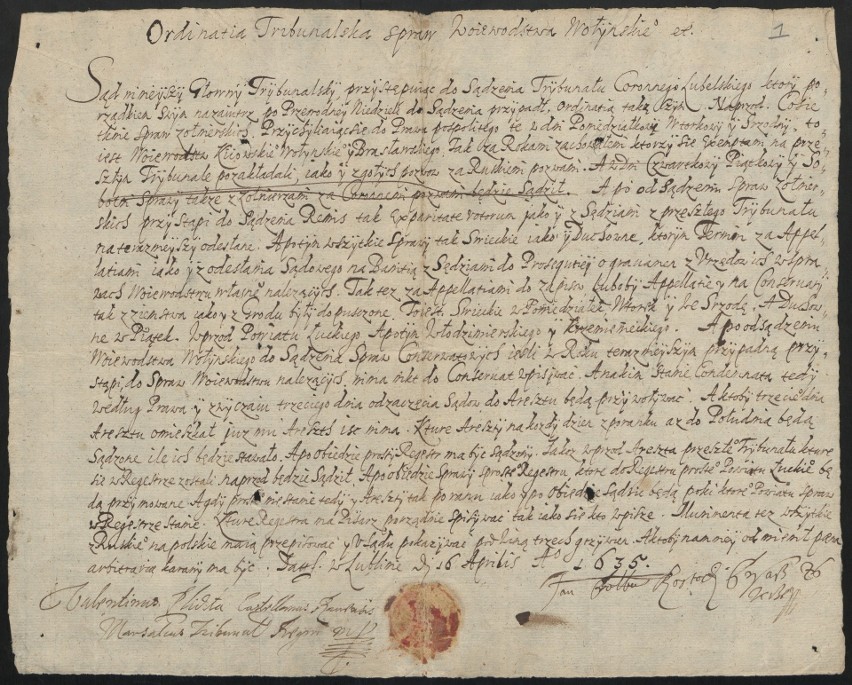 Ordinatia Trybunalska spraw Woiewodstwa Wołynskie° et. 1
Sąd ninieyszy Głowny Trybunalsky przystępuiąc do Sądzenia Trybunału Coronnego Lubelskiego ktory po-
rządkiem swym nazaiutrz po Przewodney Niedzieli do Sądzenia przypadł, ordinatią taką czyni. Naprzod Cokie
tknie Spraw zołnierskich, Przychylaiącsię do Prawa pospolitego te w dni Pomiedziałkowy Wtorkowy y Srzodny, to
iest Woiewodstw Kiiowskie° Wołynskie° y Bracławskiego, tak za Ruskiem
sztym Trybunale pozakładali, iako y z płotych pozwow za Ruskiemi pozwami. A w Dni Czwartkowy Piątkowy y So-
botni Sprawy także z Zołnierzami za Coronnemi pozwami będzie Sądził. A po od Sądzeniu Spraw Zołnier-
skich przystąpi do Sądzenia Remis tak Exparitate votorum iako y z Sądziami z przeszłego Trybunału
na terazneyszy odesłane. A potym wszytkie Sprawy tak Swieckie iako y Duchowne, ktorym Termin za Appel-
latiami iako y z odesłania Sądowego na Banitią z Sędziami do Prosequutiey o grauamen z Vrzędow ich w spra-
wach Woiewodstwu własnie nalezących. Tak tez za Appellatiami do zapisu Luboby Appellatie y na Conseruaty
tak z ziemstwa iako y z Grodu były dopuszone, To iest Swieckie w Pomiedziałek Wtorek y we Srzodę, A Duchow-
ne w Piątek. Wprzod Powiatu Łuckiego, A potym Włodzimierskiego y Krzemienieckiego. A po odsądzeniu
Woiewodstwa Wołynskiego do Sądzenia Spraw Conseruatowych ieśli w Roku terazneyszym przypadną przy-
stąpi, do Spraw Woiewodstwu nalezących, nima nikt do Conseruat wpisywać. A na kim Stanie Condemnata tedy
według Prawa y zwyczaiu trzeciego dnia od zaczęcia Sądow do Aresztu będą przywoływać. A ktoby trzeciego dnia
Aresztu omieszkał iuz mu Areszt isc nima. Ktore Areszty na kozdy dzien z poranku az do Południa będą
Sądzone ile ich będzie stawało. A po obiedzie prosty Regestr ma być sądzony. Iakoz wprzod Areszta przeszłe° Trybunału ktore
się w Regestrze zostali naprzod będzie Sądził. A po obiedzie Sprawy z proste° Regestru, ktore do Regestru proste° Powiatu Łuckie° bę-
dą przyimowane. A gdy proste° niestanie tedy y Areszty tak po ranu iako y po Obiedzie Sądzić będą poki ktore° Powiatu Spraw
w Regestrze Stanie. Ktore Regestra ma Pisarz porządnie Spisywać tak iako się kto wpisze. Munimenta tez wszytkie
z Ruskie° na polskie maią przepisować y V Sądu pokazywać pod winą trzech grzywien. A ktoby namniey od mienił pena
arbitraria karany ma być. Datt. w Lublinie Dj 16 Aprilis A° 1635.
Valentinus Castellanus
Marsalcus Tribunal Regni mp
Jan